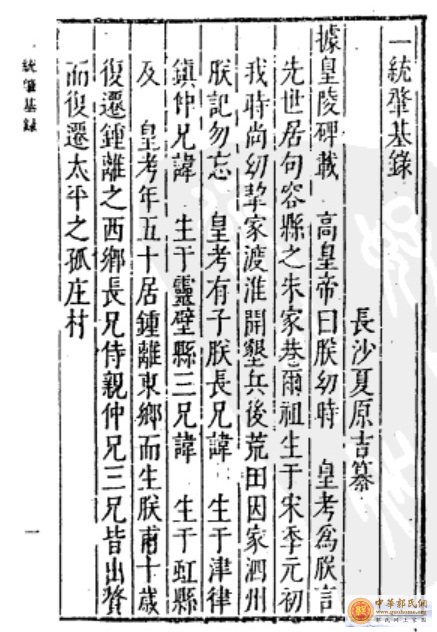 一統肇基錄
長沙夏原吉纂
據皇陵碑載　高皇帝曰朕幼時　皇考爲朕言
先世居句容縣之朱家巷爾祖生于宋季元初
我時尚幼挈家渡淮開墾兵後荒田因家泗州
朕記勿忘　皇考有子朕長兄諱　生于津律
鎮仲兄諱　生于靈壁縣三兄諱　生于虹縣
及　皇考年五十居鍾離東鄉而生朕甫十歲
復遷鍾離之西鄉長兄侍親仲兄三兄皆出贅
而復遷太平之孤庄村
統肇基錄
一
中華郭氏網
www.guohome.org